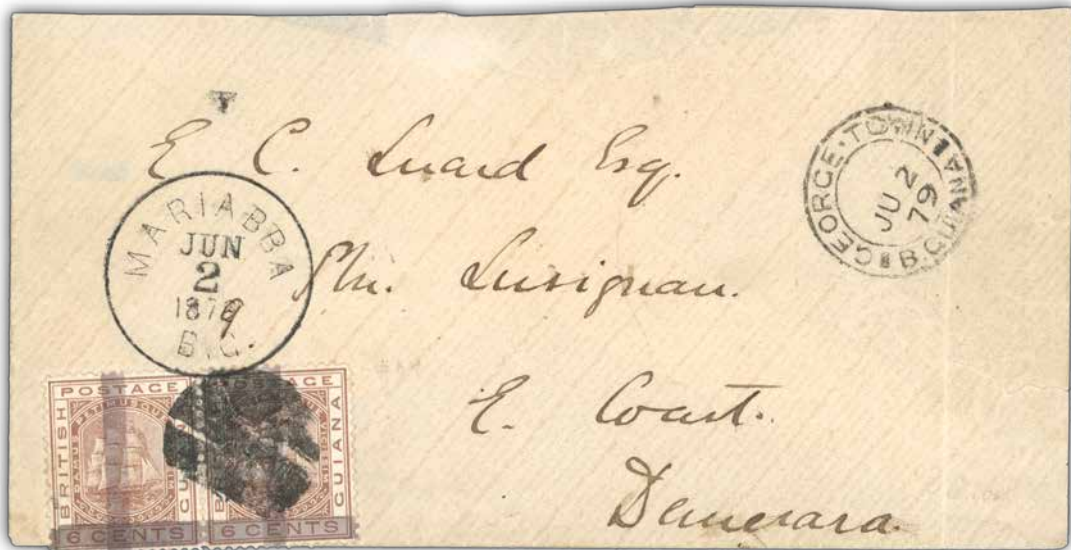 E C. Luard Esq.
Pln. Lusignan.
E. Coast.
Demerara.
MARIABBA
JUN
2
1879
B.G.
GEORGE·TOWN
JU 2
79
B.GUIANA
BRITISH POSTAGE GUIANA
DAMUS PETIMUSQUE
6 CENTS
POSTAGE GUIANA
6 CENTS